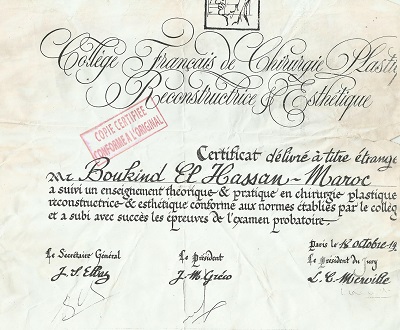 Collège Français de Chirurgie Plasti
Reconstructrice & Esthétique
COPIE CERTIFIEE
CONFORME A L'ORIGINAL
Certificat délivré à titre étrange
Mr Boukind El Hassan - Maroc
a suivi un enseignement théorique & pratique en chirurgie plastique
reconstructrice & esthétique conforme aux normes établies par le collèg
et a subi avec succès les épreuves de l'examen probatoire.
Paris le 18 octobre 19
Le Secrétaire Général
Le Président
Le Président du Jury
J. S. Elbaz
J. M. Gréco
L. C. Merville